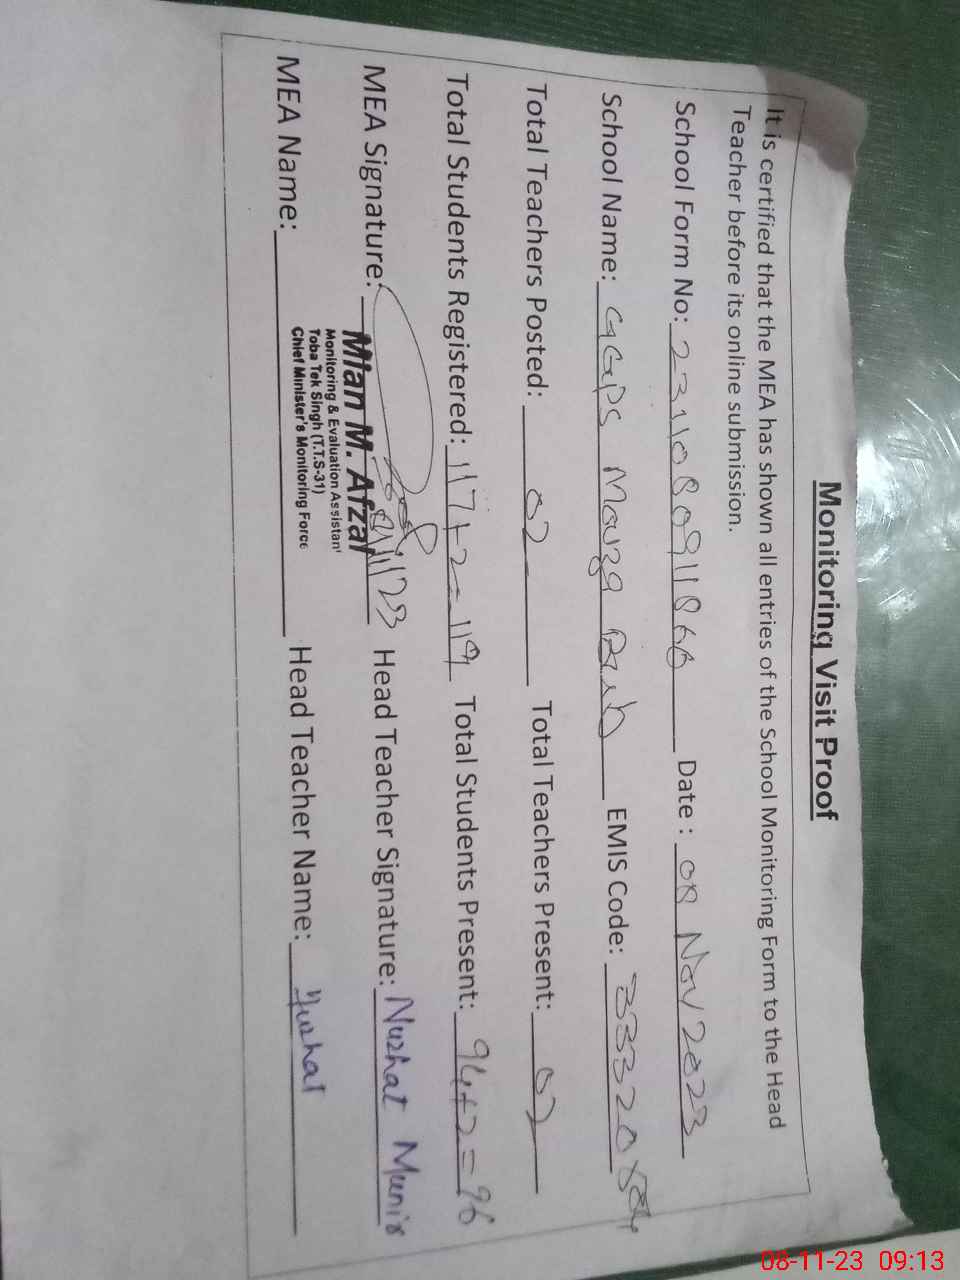 Monitoring Visit Proof
It is certified that the MEA has shown all entries of the School Monitoring Form to the Head
Teacher before its online submission.
School Form No: 2311080911866 Date : 08 Nov 2023
School Name: GGPS Mouza EMIS Code: 33320
Total Teachers Posted: 02 Total Teachers Present: 02
Total Students Registered: 117+2=119 Total Students Present: 94+2=96
MEA Signature: 08/11/23 Head Teacher Signature: Nuzhat Munir
Mian M. Afzal
Monitoring & Evaluation Assistant
Toba Tek Singh (T.T.S-31)
Chief Minister's Monitoring Force
MEA Name: Head Teacher Name: Nuzhat
08-11-23 09:13